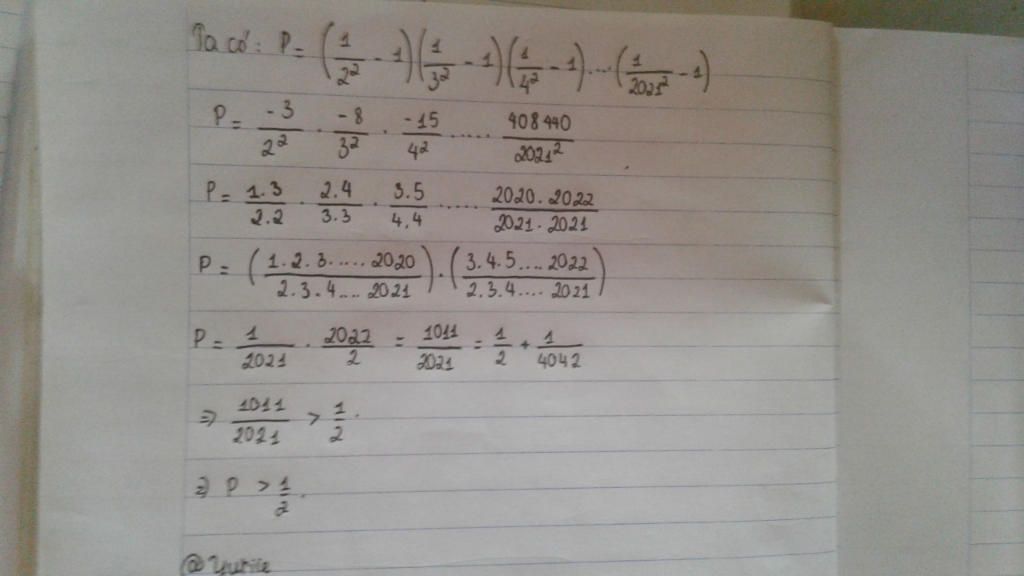 Ta có: P = (1/2² - 1)(1/3² - 1)(1/4² - 1)....(1/2021² - 1)
P = -3/2² . -8/3² . -15/4² ..... 408440/2021²
P = 1.3/2.2 . 2.4/3.3 . 3.5/4.4 ..... 2020.2022/2021.2021
P = (1.2.3.....2020/2.3.4....2021).(3.4.5....2022/2.3.4....2021)
P = 1/2021 . 2022/2 = 1011/2021 = 1/2 + 1/4042
⇒ 1011/2021 > 1/2.
⇒ P > 1/2.